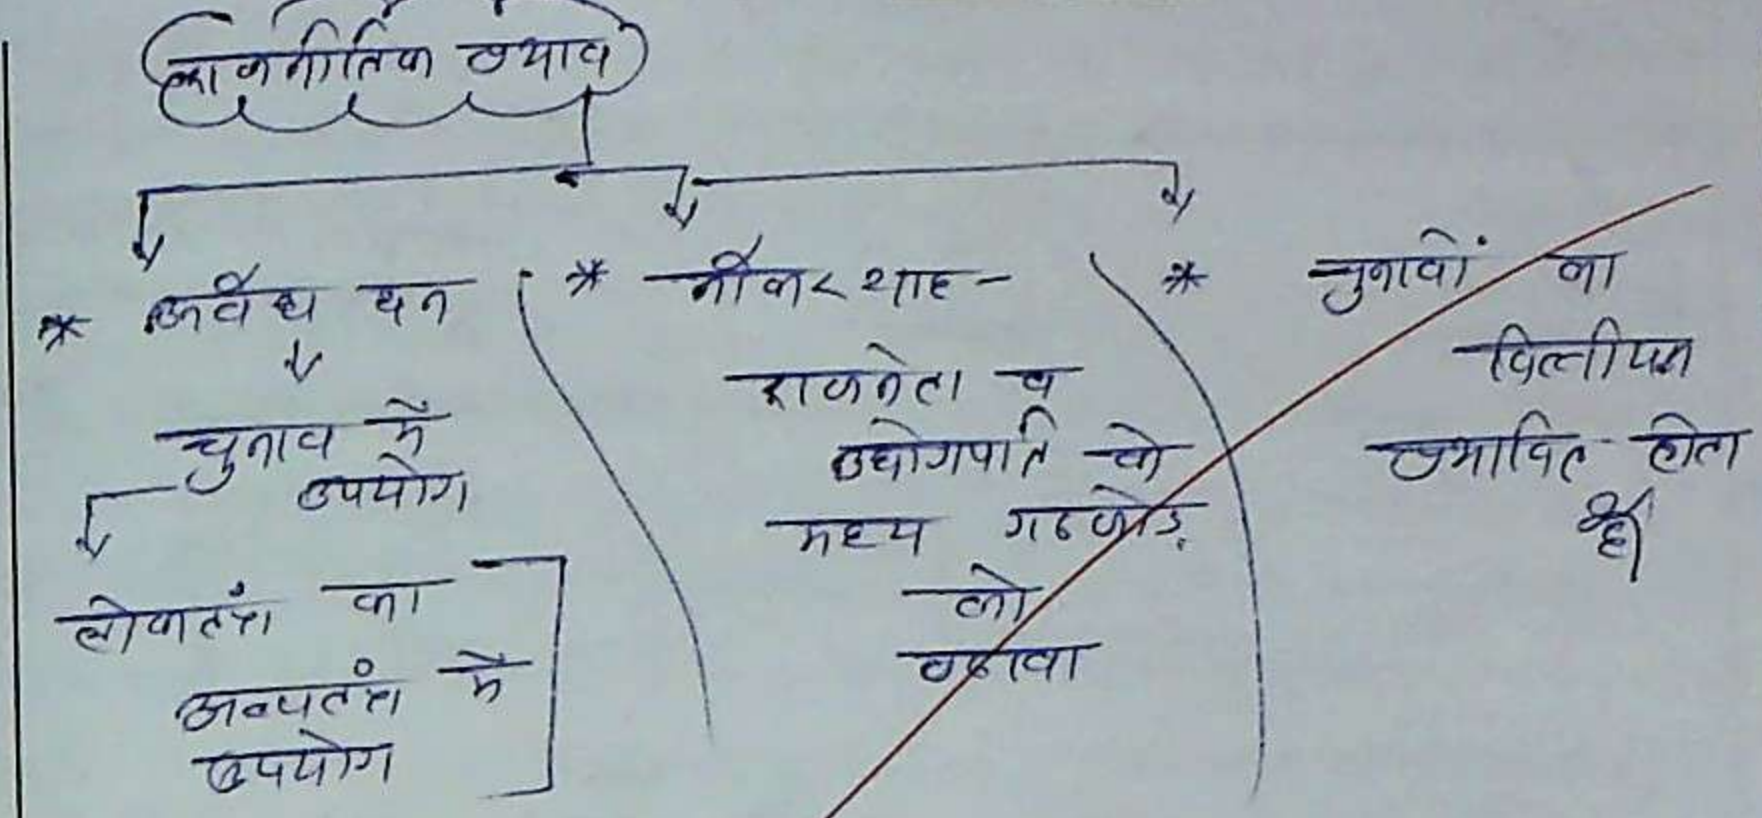 राजनीतिक प्रभाव
* अवैध धन
↓
चुनाव में
उपयोग
लोकतंत्र का
अल्पतंत्र में
उपयोग
* नौकरशाह -
राजनेता व
उद्योगपति के
मध्य गठजोड़
को
बढावा
* चुनावों का
वित्तीयन
प्रभावित होता
है